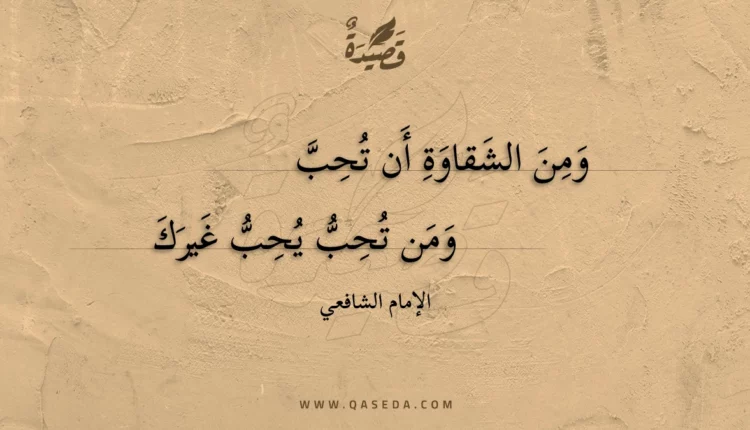 قَصِيدَةٌ
وَمِنَ الشَقاوَةِ أَن تُحِبَّ
وَمَن تُحِبُّ يُحِبُّ غَيرَكَ
الإمام الشافعي
WWW.QASEDA.COM